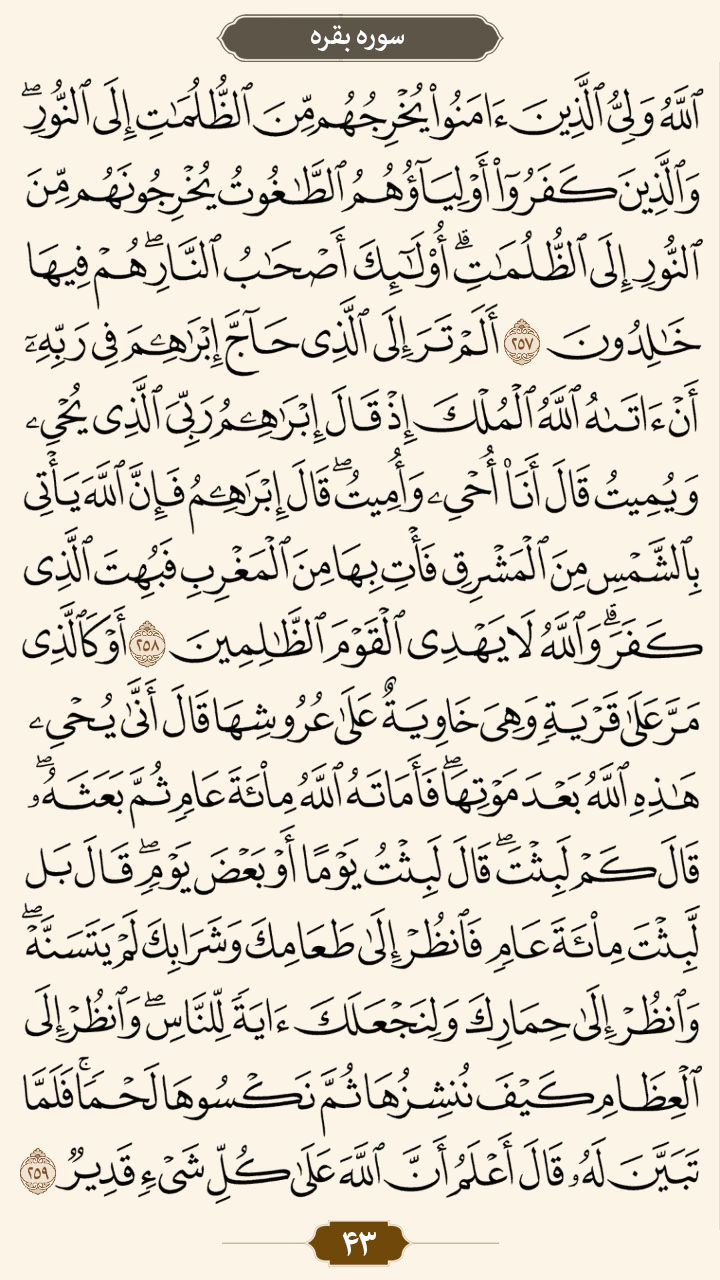 سوره بقره
ٱللَّهُ وَلِىُّ ٱلَّذِينَ ءَامَنُوا۟ يُخْرِجُهُم مِّنَ ٱلظُّلُمَـٰتِ إِلَى ٱلنُّورِ ۖ
وَٱلَّذِينَ كَفَرُوٓا۟ أَوْلِيَآؤُهُمُ ٱلطَّـٰغُوتُ يُخْرِجُونَهُم مِّنَ
ٱلنُّورِ إِلَى ٱلظُّلُمَـٰتِ ۗ أُو۟لَـٰٓئِكَ أَصْحَـٰبُ ٱلنَّارِ ۖ هُمْ فِيهَا
خَـٰلِدُونَ ٢٥٧ أَلَمْ تَرَ إِلَى ٱلَّذِى حَآجَّ إِبْرَٰهِـۧمَ فِى رَبِّهِۦٓ
أَنْ ءَاتَىٰهُ ٱللَّهُ ٱلْمُلْكَ إِذْ قَالَ إِبْرَٰهِـۧمُ رَبِّىَ ٱلَّذِى يُحْىِۦ
وَيُمِيتُ قَالَ أَنَا۠ أُحْىِۦ وَأُمِيتُ ۖ قَالَ إِبْرَٰهِـۧمُ فَإِنَّ ٱللَّهَ يَأْتِى
بِٱلشَّمْسِ مِنَ ٱلْمَشْرِقِ فَأْتِ بِهَا مِنَ ٱلْمَغْرِبِ فَبُهِتَ ٱلَّذِى
كَفَرَ ۗ وَٱللَّهُ لَا يَهْدِى ٱلْقَوْمَ ٱلظَّـٰلِمِينَ ٢٥٨ أَوْ كَٱلَّذِى
مَرَّ عَلَىٰ قَرْيَةٍ وَهِىَ خَاوِيَةٌ عَلَىٰ عُرُوشِهَا قَالَ أَنَّىٰ يُحْىِۦ
هَـٰذِهِ ٱللَّهُ بَعْدَ مَوْتِهَا ۖ فَأَمَاتَهُ ٱللَّهُ مِا۟ئَةَ عَامٍ ثُمَّ بَعَثَهُۥ ۖ
قَالَ كَمْ لَبِثْتَ ۖ قَالَ لَبِثْتُ يَوْمًا أَوْ بَعْضَ يَوْمٍ ۖ قَالَ بَل
لَّبِثْتَ مِا۟ئَةَ عَامٍ فَٱنظُرْ إِلَىٰ طَعَامِكَ وَشَرَابِكَ لَمْ يَتَسَنَّهْ ۖ
وَٱنظُرْ إِلَىٰ حِمَارِكَ وَلِنَجْعَلَكَ ءَايَةً لِّلنَّاسِ ۖ وَٱنظُرْ إِلَى
ٱلْعِظَامِ كَيْفَ نُنشِزُهَا ثُمَّ نَكْسُوهَا لَحْمًا ۚ فَلَمَّا
تَبَيَّنَ لَهُۥ قَالَ أَعْلَمُ أَنَّ ٱللَّهَ عَلَىٰ كُلِّ شَىْءٍ قَدِيرٌ ٢٥٩
۴۳